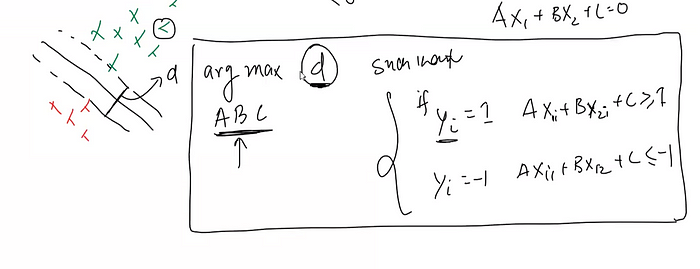 AX₁ + BX₂ + C = 0
d
arg max d such that
A B C
if yᵢ = 1 AX₁ᵢ + BX₂ᵢ + C ≥ 1
Yᵢ = -1 AXᵢ₁ + BXᵢ₂ + C ≤ -1